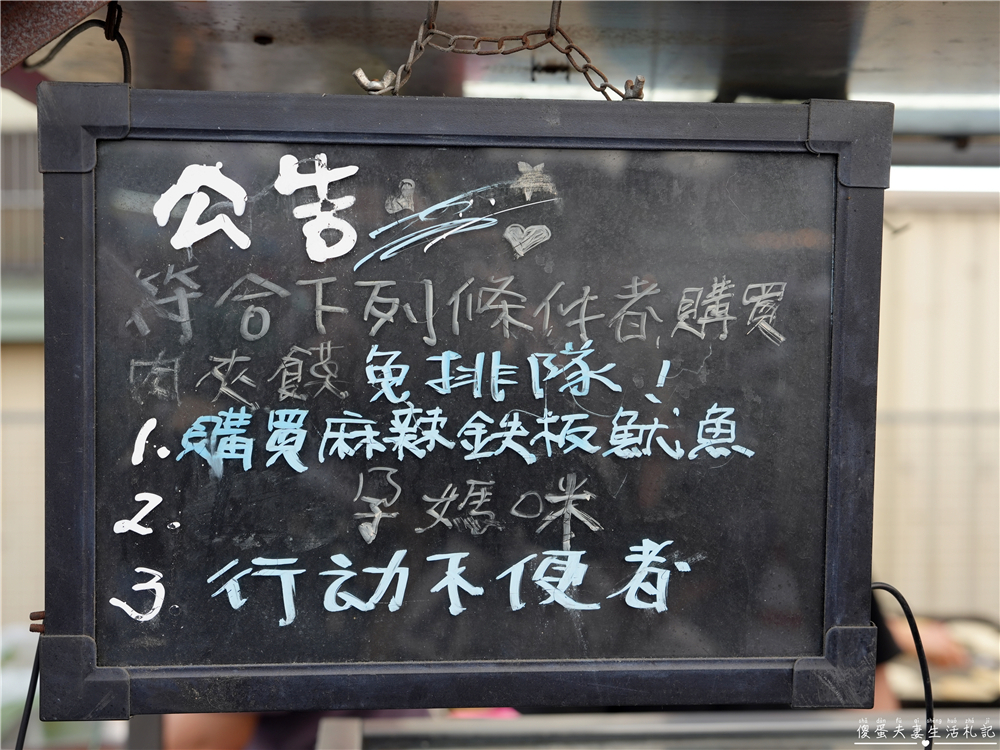 公告
符合下列條件者購買
肉夾饃免排隊!
1. 購買麻辣鉄板魷魚
2. 孕媽咪
3. 行动不便者
傻蛋夫妻生活札記